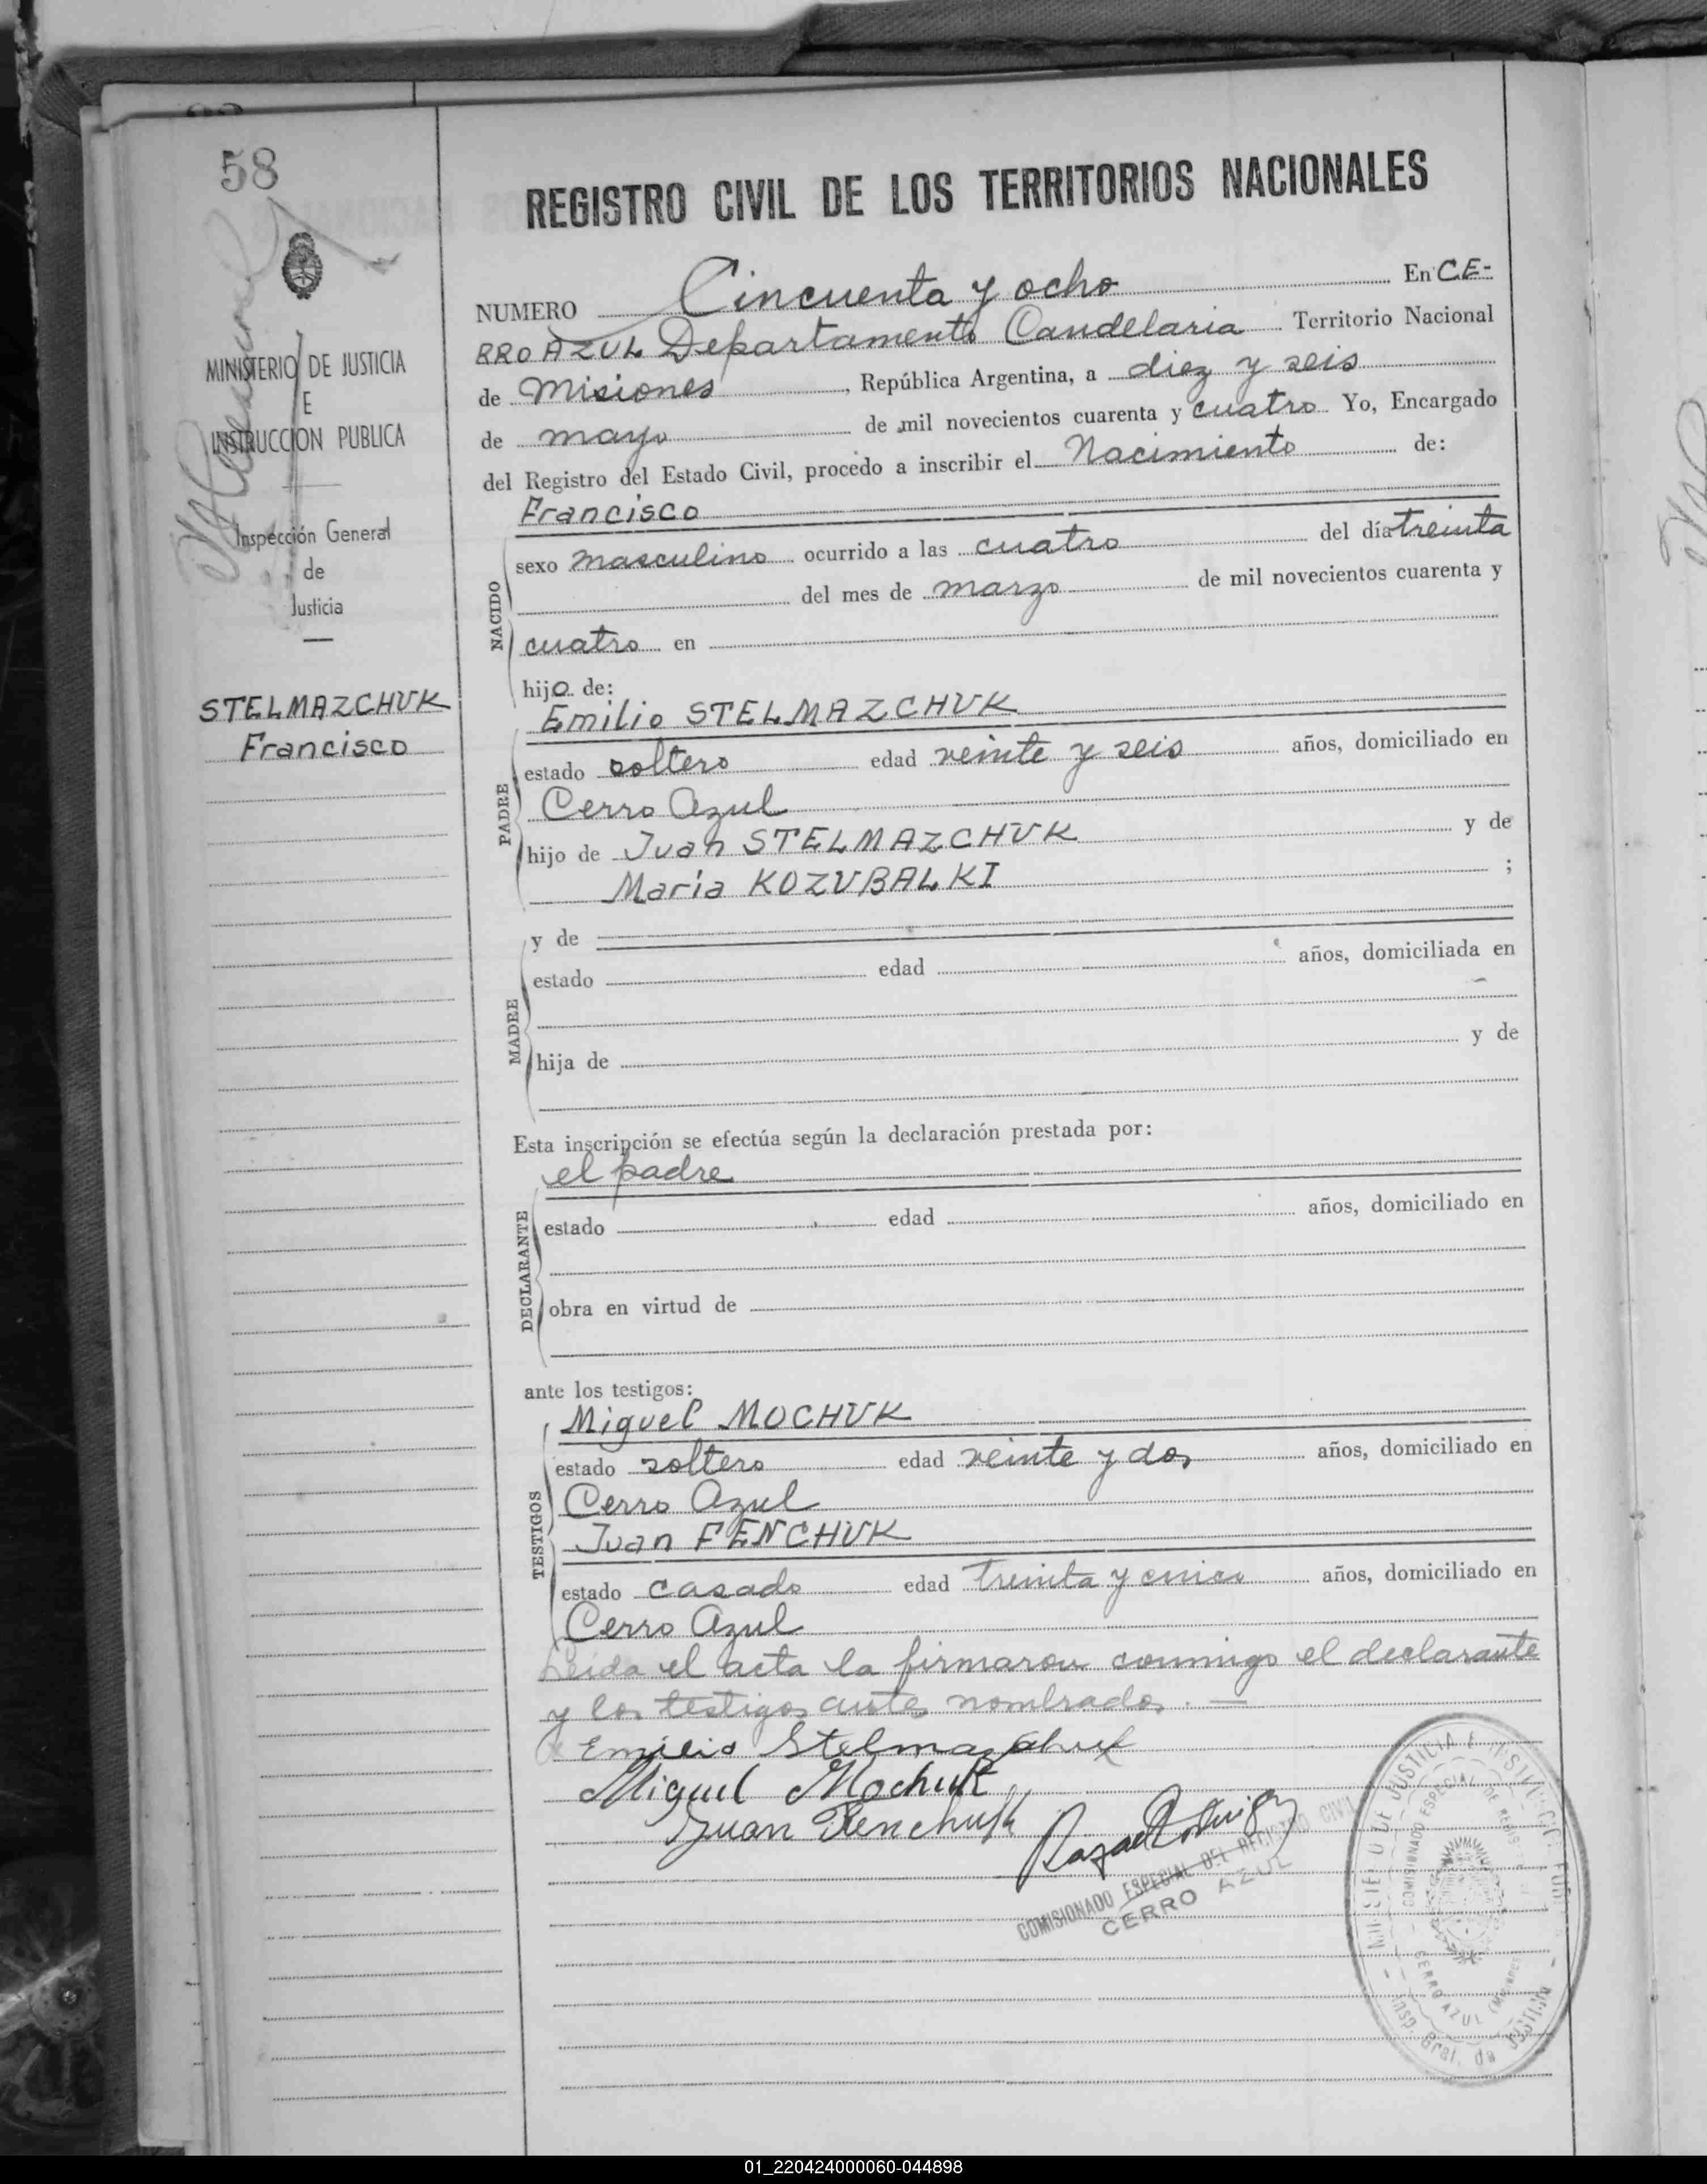 58
REGISTRO CIVIL DE LOS TERRITORIOS NACIONALES
NUMERO Cincuenta y ocho En CE-
RRO AZUL Departamento Candelaria Territorio Nacional
de Misiones, República Argentina, a diez y seis
de mayo de mil novecientos cuarenta y cuatro Yo, Encargado
del Registro del Estado Civil, procedo a inscribir el Nacimiento de:
MINISTERIO DE JUSTICIA
E
INSTRUCCION PUBLICA
Inspección General
de
Justicia
STELMAZCHUK
Francisco
NACIDO
Francisco
sexo masculino ocurrido a las cuatro del día treinta
del mes de marzo de mil novecientos cuarenta y
cuatro en
hijo de:
PADRE
Emilio STELMAZCHUK
estado soltero edad veinte y seis años, domiciliado en
Cerro Azul
hijo de Juan STELMAZCHUK y de
Maria KOZUBALKI ;
MADRE
y de
estado edad años, domiciliada en
hija de y de
Esta inscripción se efectúa según la declaración prestada por:
DECLARANTE
el padre
estado edad años, domiciliado en
obra en virtud de
ante los testigos:
TESTIGOS
Miguel MOCHUK
estado soltero edad veinte y dos años, domiciliado en
Cerro Azul
Juan FENCHUK
estado casado edad treinta y cinco años, domiciliado en
Cerro Azul
Leida el acta la firmaron conmigo el declarante
y los testigos antes nombrados. —
Emilio Stelmazchuk
Miguel Mochuk
Juan Fenchuk
COMISIONADO ESPECIAL DEL REGISTRO CIVIL
CERRO AZUL
MINISTERIO DE JUSTICIA E INSTRUCCION PUBLICA
COMISIONADO ESPECIAL DE REGIS
CERRO AZUL
Insp. Gral. de Justicia
01_220424000060-044898